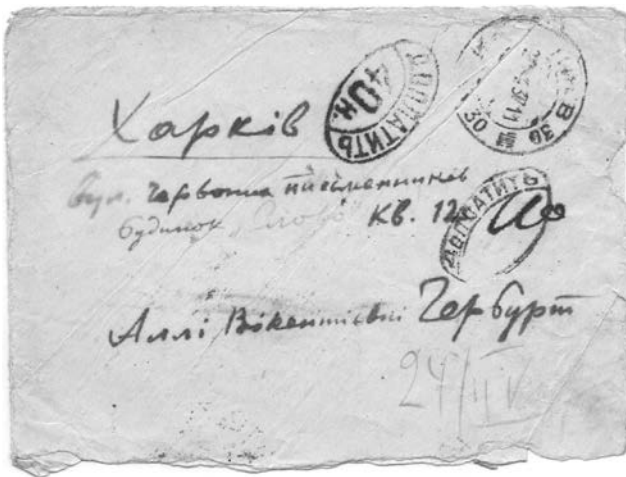 Харків
ДОПЛАТИТЬ
40 к.
вул. Червоних письменників
будинок „Слово“ кв. 12
ДОПЛАТИТЬ
30 30
Аллі Вікентіївні Гербурт
24/IV